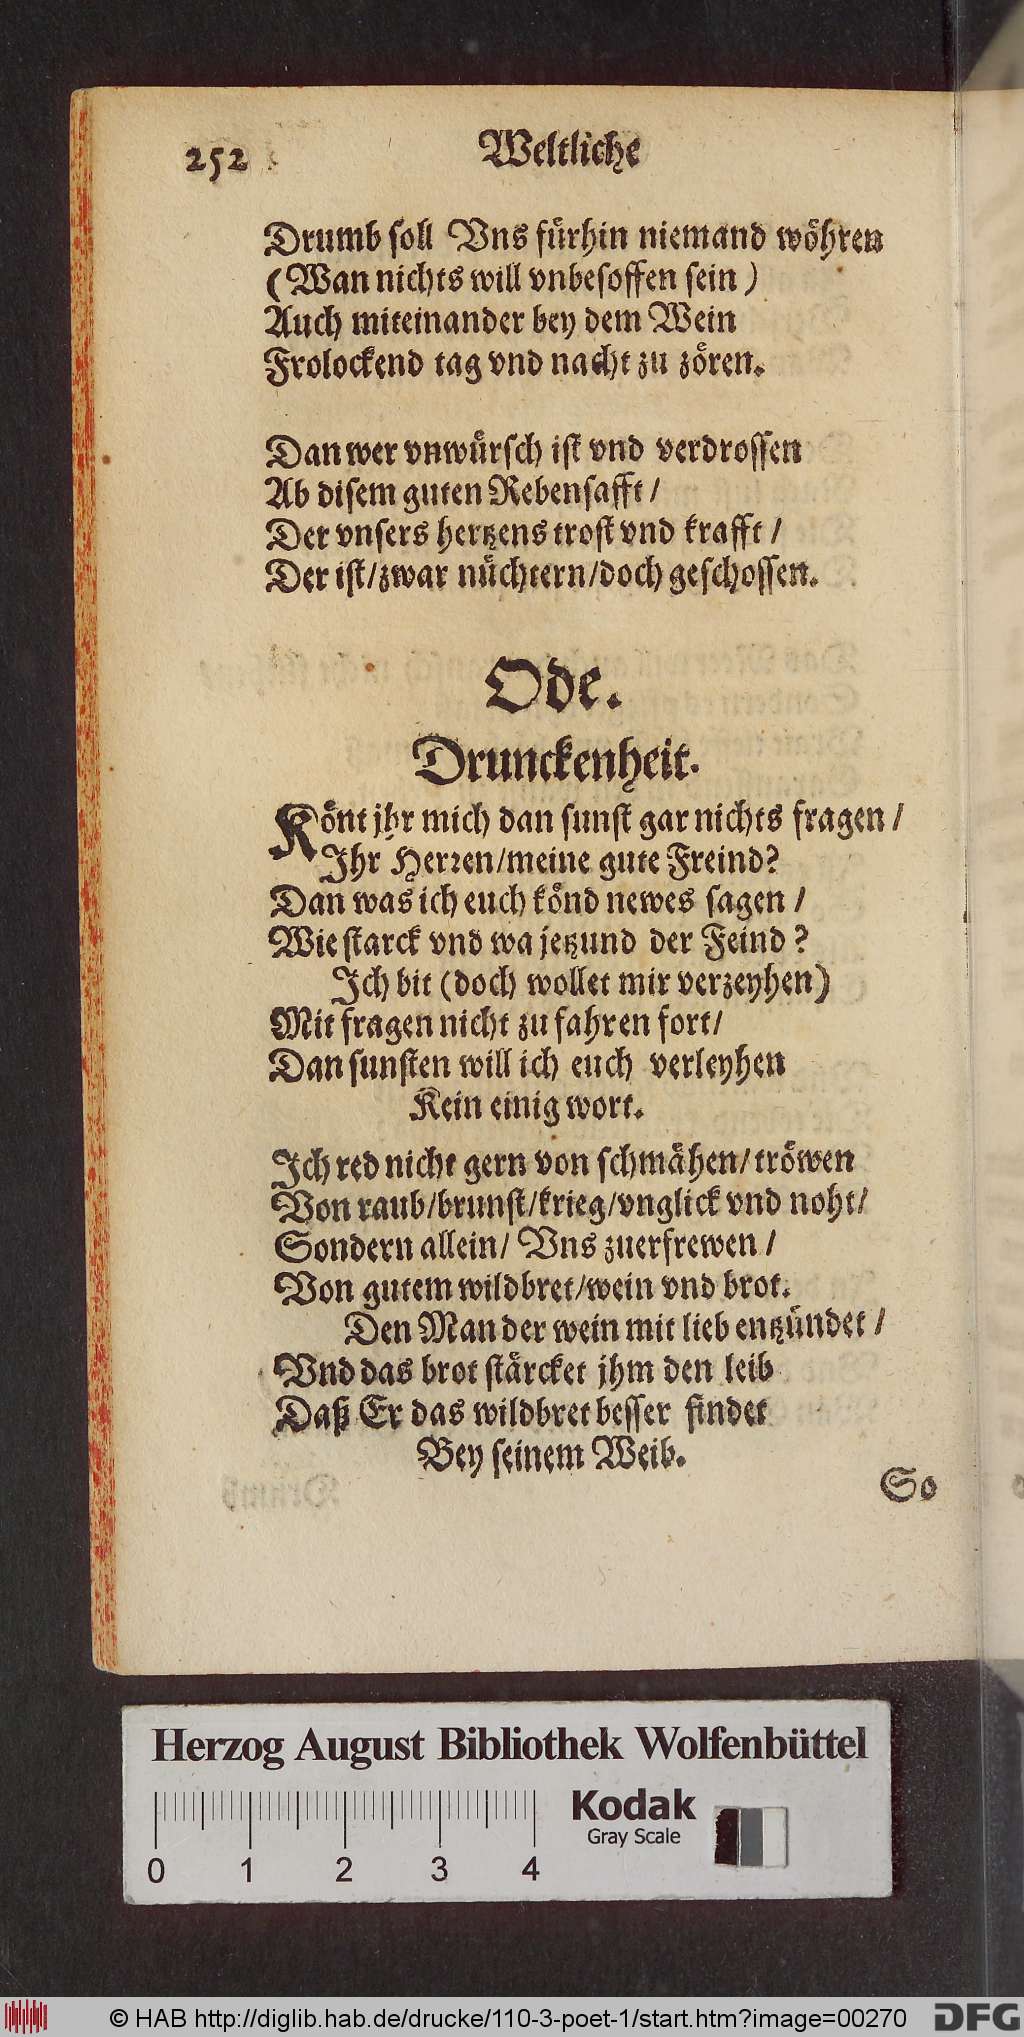 252 Weltliche
Drumb soll Vns fürhin niemand wöhren
(Wan nichts will vnbesoffen sein)
Auch miteinander bey dem Wein
Frolockend tag vnd nacht zu zören.
Dan wer vnwürsch ist vnd verdrossen
Ab disem guten Rebensafft /
Der vnsers hertzens trost vnd krafft /
Der ist/zwar nüchtern/doch geschossen.
Ode.
Drunckenheit.
Könt jhr mich dan sunst gar nichts fragen /
Ihr Herren/meine gute Freind?
Dan was ich euch könd newes sagen /
Wie starck vnd wa jetzund der Feind?
Ich bit (doch wollet mir verzeyhen)
Mit fragen nicht zu fahren fort/
Dan sunsten will ich euch verleyhen
Kein einig wort.
Ich red nicht gern von schmähen/tröwen
Von raub/brunst/krieg/vnglick vnd noht/
Sondern allein/ Vns zuerfrewen /
Von gutem wildbret/wein vnd brot.
Den Man der wein mit lieb entzündet /
Vnd das brot stärcket jhm den leib
Daß Er das wildbret besser findet
Bey seinem Weib.
So
Herzog August Bibliothek Wolfenbüttel
Kodak
Gray Scale
0 1 2 3 4
© HAB http://diglib.hab.de/drucke/110-3-poet-1/start.htm?image=00270 DFG